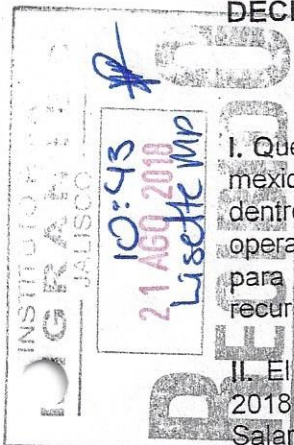 DECI
INSTITUTO
JALISCO
10:43
21 AGO 2018
Lisette MP
RECIBIDO
I. Que
mexic
dentro
opera
para
recur
II. El
2018
Salar